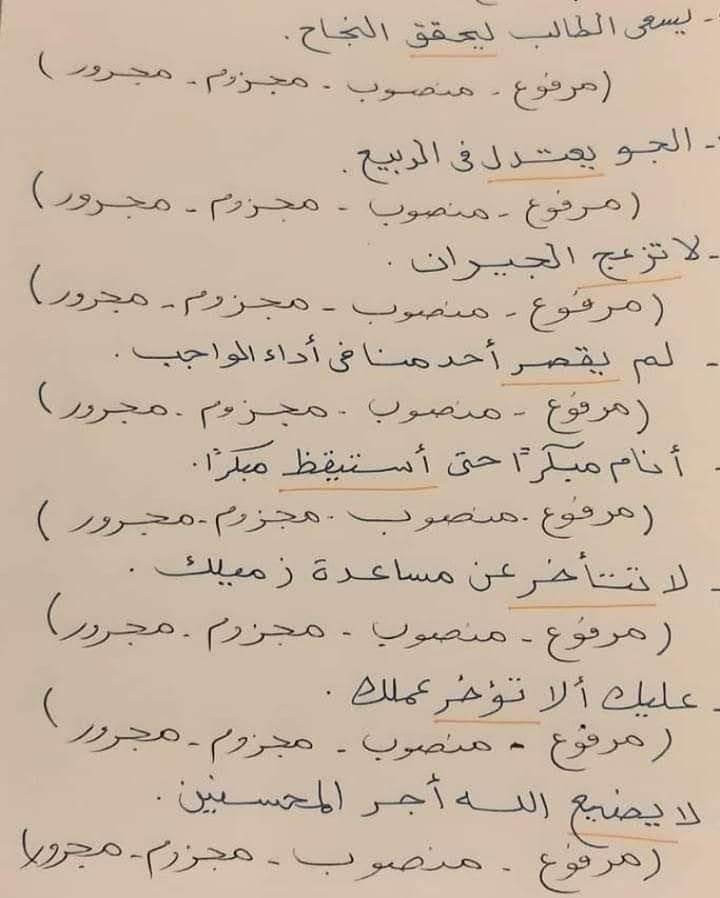 - يسعى الطالب ليحقق النجاح.
(مرفوع - منصوب - مجزوم - مجرور)
- الجو يعتدل فى الربيع.
(مرفوع - منصوب - مجزوم - مجرور)
- لا تزعج الجيران.
(مرفوع - منصوب - مجزوم - مجرور)
- لم يقصر أحد منا فى أداء الواجب.
(مرفوع - منصوب - مجزوم - مجرور)
- أنام مبكرًا حتى أستيقظ مبكرًا.
(مرفوع - منصوب - مجزوم - مجرور)
- لا تتأخر عن مساعدة زميلك.
(مرفوع - منصوب - مجزوم - مجرور)
- عليك ألا تؤخر عملك.
(مرفوع - منصوب - مجزوم - مجرور)
لا يضيع الله أجر المحسنين.
(مرفوع - منصوب - مجزوم - مجرور)